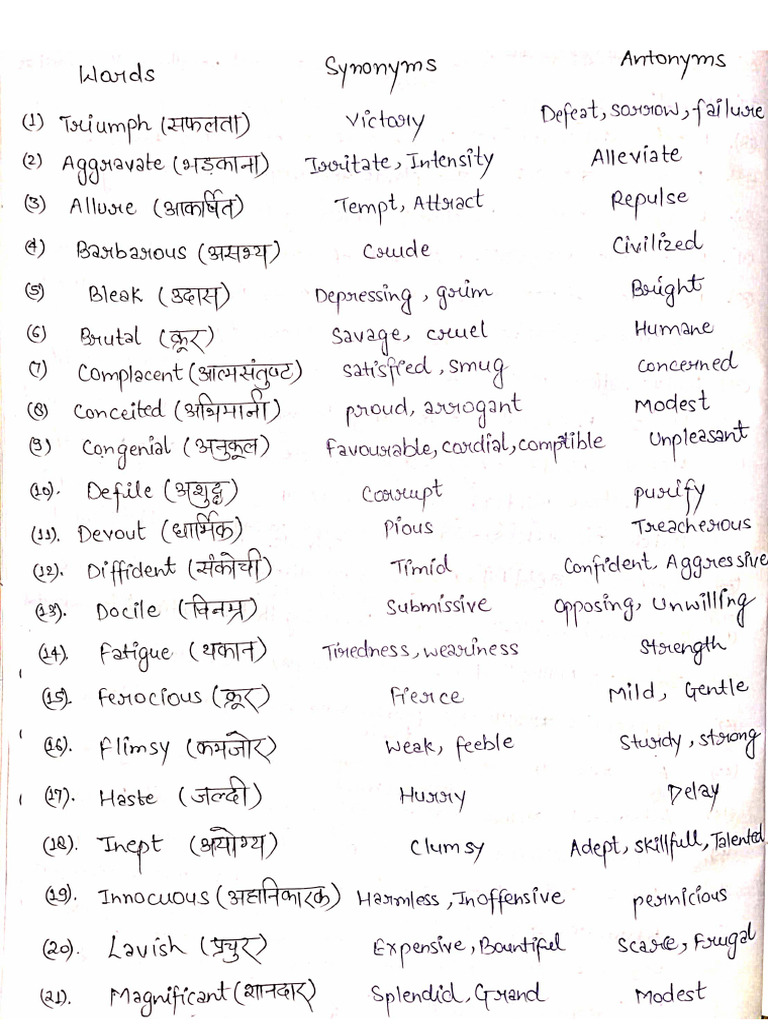 Words Synonyms Antonyms
(1) Triumph (सफलता) Victory Defeat, sorrow, failure
(2) Aggravate (भड़काना) Irritate, Intensity Alleviate
(3) Allure (आकर्षित) Tempt, Attract Repulse
(4) Barbarous (असभ्य) Crude Civilized
(5) Bleak (उदास) Depressing, grim Bright
(6) Brutal (क्रूर) Savage, cruel Humane
(7) Complacent (आत्मसंतुष्ट) satisfied, smug concerned
(8) Conceited (अभिमानी) proud, arrogant Modest
(9) Congenial (अनुकूल) favourable, cordial, comptible Unpleasant
(10). Defile (अशुद्ध) Corrupt purify
(11). Devout (धार्मिक) Pious Treacherous
(12). Diffident (संकोची) Timid Confident, Aggressive
(13). Docile (विनम्र) Submissive Opposing, Unwilling
(14). Fatigue (थकान) Tiredness, weariness Strength
(15). Ferocious (क्रूर) Fierce Mild, Gentle
(16). Flimsy (कमजोर) Weak, feeble Sturdy, strong
(17). Haste (जल्दी) Hurry Delay
(18). Inept (अयोग्य) Clumsy Adept, skillfull, Talented
(19). Innocuous (अहानिकारक) Harmless, Inoffensive pernicious
(20). Lavish (प्रचुर) Expensive, Bountiful Scarce, Frugal
(21). Magnificant (शानदार) Splendid, Grand Modest